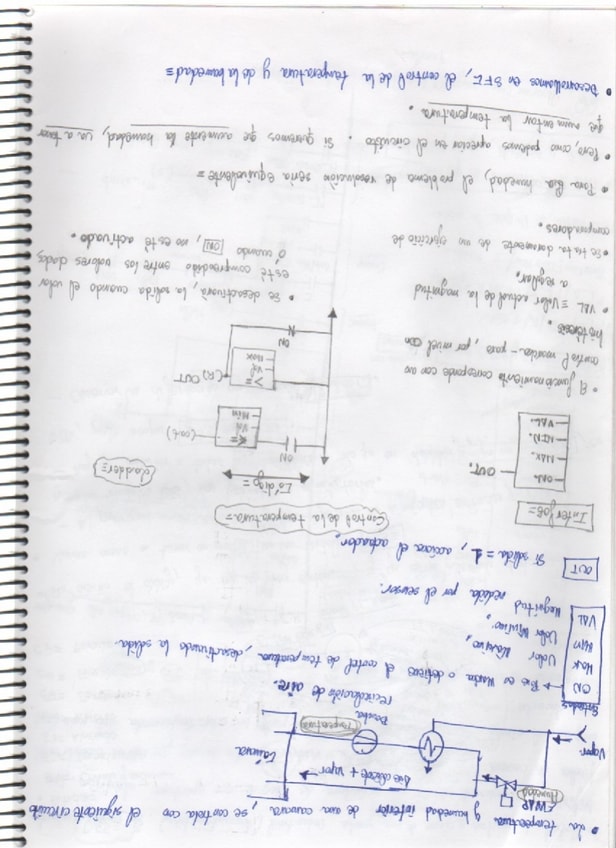 • La temperatura y humedad interior de una camara, se controla con el siguiente circuito
EWAP
Humedad
Vapor.
Aire caliente + vapor.
Cámara.
Temperatura
Bomba
recirculación de aire.
Entradas
ON → Bit es
o deshace el control de temperatura, desactivando la salida.
MAX Valor Máximo,
MIN Valor Mínimo,
VAL Magnitud medida por el sensor.
OUT Si salida = 1, acciona el actuador.
Control de la temperatura =
Interfaz =
ON.
MAX.
MIN.
VAL.
OUT.
Lógica =
ladder =
ON
<=
Val
Min
(OUT)
>=
Val
Max
(R) OUT
ON
N
• El funcionamiento corresponde con un
control marcha-paro, por nivel, con
histéresis.
• VAL = Valor actual de la magnitud
a regular.
• Se trata claramente de un ejercicio de
comparadores.
• Se desactivará, la salida cuando el valor
esté comprendido entre los valores dados,
O cuando ON, no esté activado.
• Para la humedad, el problema de resolución sería equivalente =
• Pero, como podemos apreciar en el circuito. Si queremos que aumente la humedad, va a tener
que aumentar la temperatura.
• Desarrollamos en SFC, el control de la temperatura y de la humedad =